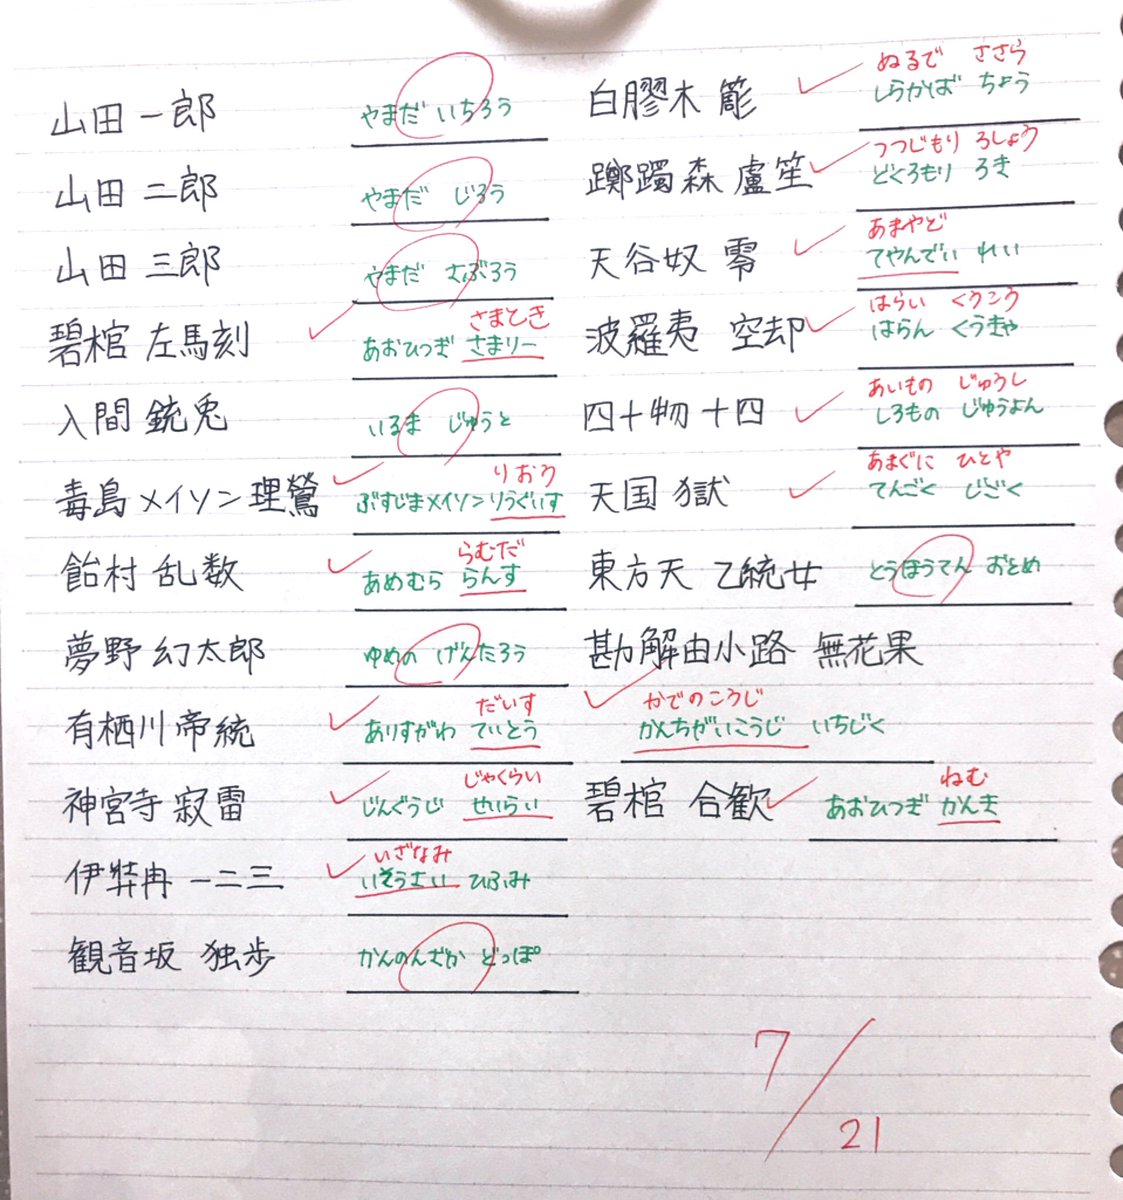 山田 一郎 やまだ いちろう
山田 二郎 やまだ じろう
山田 三郎 やまだ さぶろう
さまとき
碧棺 左馬刻 あおひつぎ さまりー
入間 銃兎 いるま じゅうと
りおう
毒島 メイソン 理鶯 ぶすじまメイソンりうぐいす
らむだ
飴村 乱数 あめむら らんす
夢野 幻太郎 ゆめの げんたろう
だいす
有栖川 帝統 ありすがわ ていとう
じゃくらい
神宮寺 寂雷 じんぐうじ せいらい
いざなみ
伊弉冉 一二三 いそうさい ひふみ
観音坂 独歩 かんのんざか どっぽ
ぬるで ささら
白膠木 簓 しらかば ちょう
つつじもり ろしょう
躑躅森 盧笙 どくろもり ろき
あまやど
天谷奴 零 てやんでい れい
はらい くうこう
波羅夷 空却 はらん くうきゃ
あいもの じゅうし
四十物 十四 しろもの じゅうよん
あまぐに ひとや
天国 獄 てんごく じごく
東方天 乙統女 とうほうてん おとめ
勘解由小路 無花果
かでのこうじ
かんちがいこうじ いちじく
ねむ
碧棺 合歓 あおひつぎ かんき
7/21